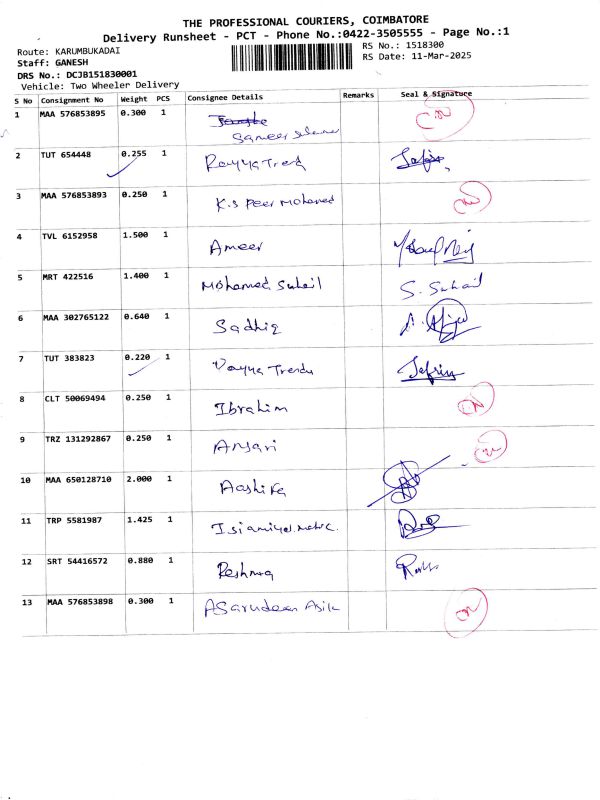 THE PROFESSIONAL COURIERS, COIMBATORE
Delivery Runsheet - PCT - Phone No.:0422-3505555 - Page No.:1
Route: KARUMBUKADAI
RS No.: 1518300
Staff: GANESH
RS Date: 11-Mar-2025
DRS No.: DCJB151830001
Vehicle: Two Wheeler Delivery
S No Consignment No Weight PCS Consignee Details Remarks Seal & Signature
1 MAA 576853895 0.300 1 Sameer
2 TUT 654448 0.255 1 Rayya Trend
3 MAA 576853893 0.250 1 K.S Peer Mohamed
4 TVL 6152958 1.500 1 Ameer
5 MRT 422516 1.400 1 Mohamed Suhail S. Suhail
6 MAA 302765122 0.640 1 Sadhiq
7 TUT 383823 0.220 1 Trends Jefrin
8 CLT 50069494 0.250 1 Ibrahim
9 TRZ 131292867 0.250 1 Ansari
10 MAA 650128710 2.000 1 Aashika
11 TRP 5581987 1.425 1
12 SRT 54416572 0.880 1 Reshma
13 MAA 576853898 0.300 1 Asarudeen Asik